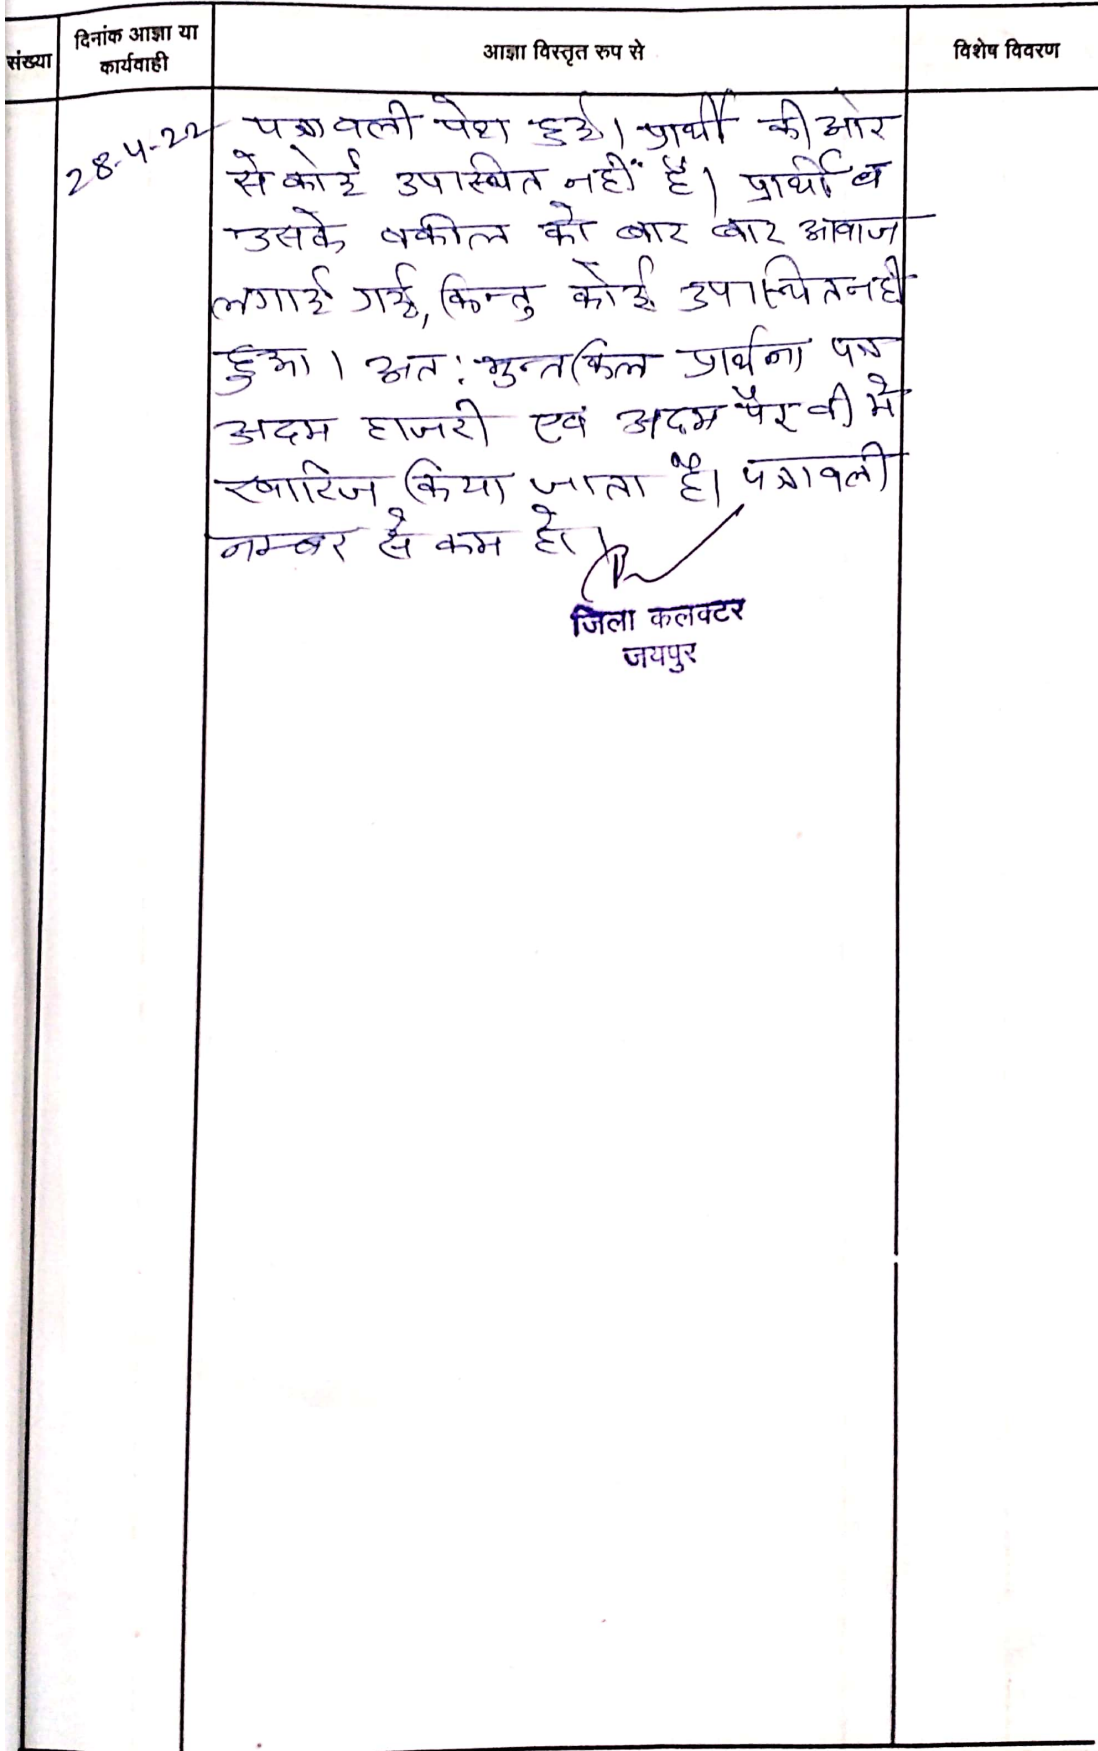 संख्या
दिनांक आज्ञा या
कार्यवाही
आज्ञा विस्तृत रुप से
विशेष विवरण
28-4-22
पत्रावली पेश हुई। प्रार्थी की ओर
से कोई उपास्थित नहीं है। प्रार्थी व
उसके वकील को बार बार आवाज
लगाई गई, किन्तु कोई उपास्थित नही
हुआ। अत: मुन्तकिल प्रार्थना पत्र
अदम हाजरी एवं अदम पैरवी में
खारिज किया जाता है। पत्रावली
नम्बर से कम हो।
जिला कलक्टर
जयपुर